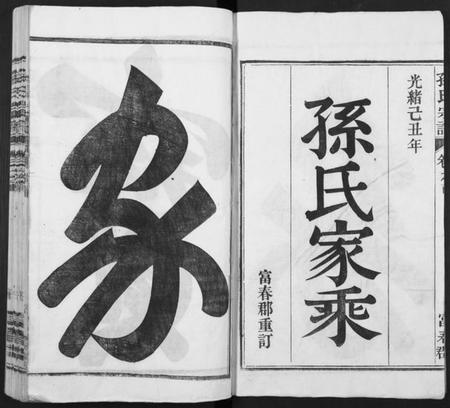 孫氏宗譜
富春郡
光緒己丑年
孫氏家乘
富春郡重訂
家